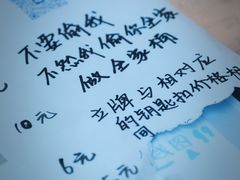 不要偷我
不然我偷你全家
做全家桶
10元
立牌与相对应
的钥匙扣价格相
同
6元